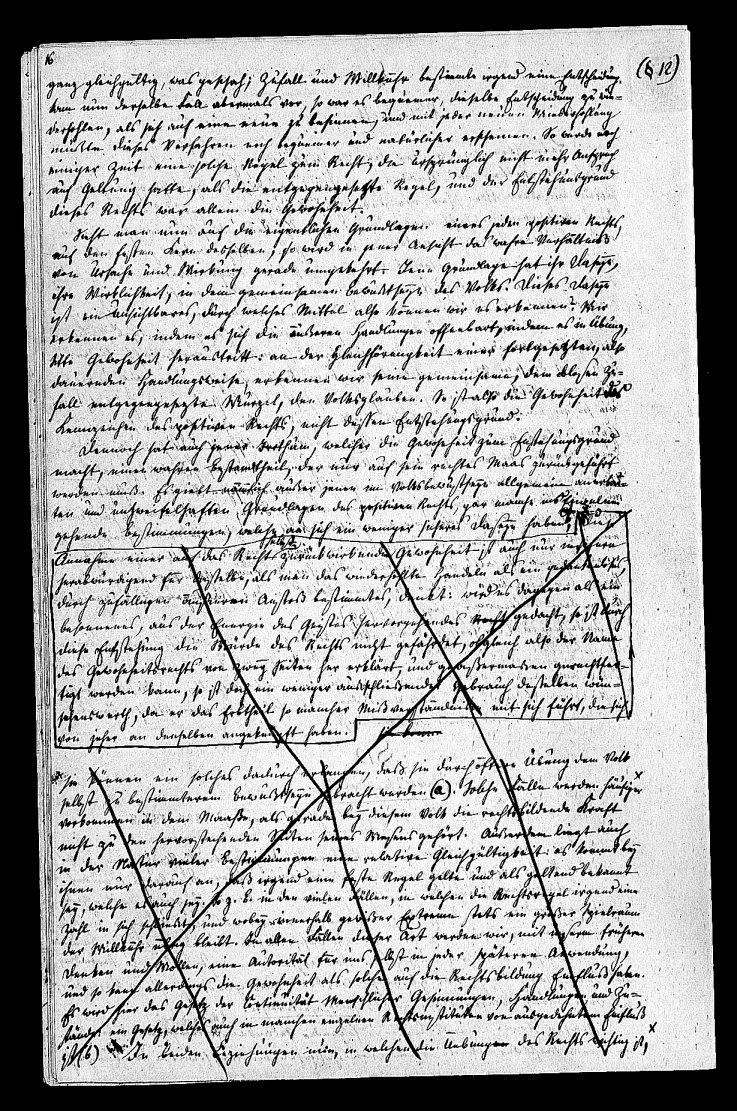 16
(§ 12)
ganz gleichgültig, was geschah; Zufall und Willkühr bestimmte irgend eine Entscheidung.
Kam nun derselbe Fall abermals vor, so war es bequemer, dieselbe Entscheidung zu wie-
derhohlen, als sich auf eine neue zu besinnen, und mit jeder neuen Wiederhohlung
mußte dieses Verfahren noch bequemer und natürlicher erscheinen. So wurde nach
einiger Zeit eine solche Regel zum Recht, die ursprünglich nicht mehr Anspruch
auf Geltung hatte, als die entgegengesetzte Regel, und der Entstehungsgrund
dieses Rechts war allein die Gewohnheit.
Sieht man nun auf die eigentlichen Grundlagen eines jeden positiven Rechts,
auf den festen Kern desselben, so wird in jener Ansicht das wahre Verhältniß
von Ursache und Wirkung gerade umgekehrt. Jene Grundlage hat ihr Daseyn,
ihre Wirklichkeit, in dem gemeinsamen Bewußtseyn des Volks. Dieses Daseyn
ist ein unsichtbares, durch welches Mittel also können wir es erkennen? Wir
erkennen es, indem es sich in äußeren Handlungen offenbart, indem es in Übung,
Sitte Gewohnheit heraustritt: an der Gleichförmigkeit einer fortgesetzten, also
dauernden Handlungsweise, erkennen wir seine gemeinsame, dem bloßen Zu-
fall entgegengesetzte Wurzel, den Volksglauben. So ist also die Gewohnheit das
Kennzeichen des positiven Rechts, nicht dessen Entstehungsgrund.
Dennoch hat auch jener Irrthum, welcher die Gewohnheit zum Enstehungsgrund
macht, einen wahren Bestandtheil, der nur auf sein rechtes Maas zurückgeführt
werden muß. Es giebt nämlich außer jenen im Volksbewußtseyn allgemein anerkann-
ten und unzweifelhaften Grundlagen des positiven Rechts, gar manche ins Einzelne
gehende Bestimmungen, welche an sich ein weniger sicheres Daseyn haben;
Annahme einer auf das Recht selbst zurück wirkenden Gewohnheit ist auch nur in sofern
herabwürdigend für dasselbe, als man das wiederhohlte Handeln als ein gedankenloses,
durch zufälligen äußeren Anstoß bestimmtes, denkt: wird es dagegen als ein
besonnenes, aus der Energie des Geistes hervorgehendes gedacht, so ist durch
diese Entstehung die Würde des Rechts nicht gefährdet, obgleich also der Name
des Gewohnheitsrechts von zwey Seiten her erklärt, und gewissermaßen gerechtfer-
tigt werden kann, so ist doch ein weniger ausschließender Gebrauch desselben wün-
schenswerth, da er das Erbtheil so mancher Misverständnisse mit sich führt, die sich
von jeher an denselben angeknüpft haben.
sie können ein solches dadurch erlangen, daß sie durch öftere Übung dem Volk
selbst zu bestimmterem Bewußtseyn gebracht werden (a). Solche Fälle werden häufiger
vorkommen in dem Maaße, als gerade bey diesem Volk die rechtsbildende Kraft
nicht zu den hervorstehenden Seiten seines Wesens gehört. Außerdem liegt auch
in der Natur vieler Bestimmungen eine relative Gleichgültigkeit; es kommt bey
ihnen nur darauf an, daß irgend eine feste Regel gelte und als geltend bekannt
sey, welche es auch sey. So z. B. in den vielen Fällen, in welchen die Rechtsregel irgend eine
Zahl in sich schließt, und wobey innerhalb gewisser Extreme stets ein großer Spielraum
der Willkühr übrig bleibt. In allen Fällen dieser Art werden wir, mit unserm früheren
Denken und Wollen, eine Autorität für uns selbst in jeder späteren Anwendung,
und so kann allerdings die Gewohnheit als solche auch die Rechtsbildung Einfluß haben.
Es wird hier das Gesetz der Continuität menschlicher Gesinnungen, Handlungen und Zu-
stände ein Gesetz, welches auch in manchen einzelnen Rechtsinstituten von ausgedehntem Einfluß
ist (b) In beiden Beziehungen nun, in welchen die Uebungen des Rechts wichtig ist,